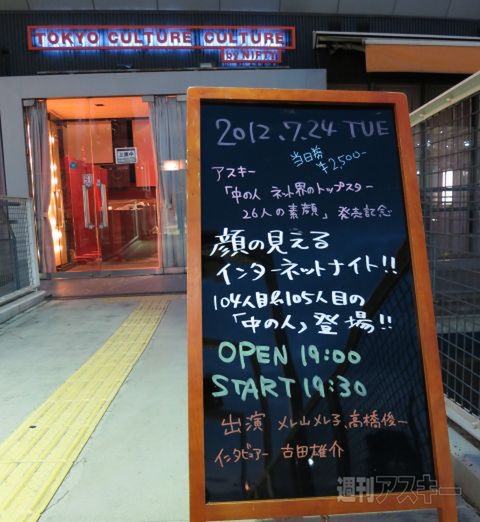 TOKYO CULTURE CULTURE
BY NIFTY
2012.7.24 TUE
当日券
¥2,500-
アスキー
「中の人 ネット界のトップスター
26人の素顔」発売記念
顔の見える
インターネットナイト!!
104人目&105人目の
「中の人」登場!!
OPEN 19:00
START 19:30
出演 メレ山メレ子、高橋俊一
インタビアー 古田雄介
週刊アスキー